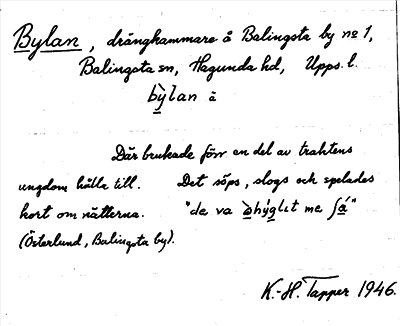 Bylan, drängkammare å Balingsta by nº 1,
Balingsta sn, Hagunda hd, Upps. l.
bỳlan ä
Där brukade förr en del av traktens
ungdom hålla till. Det söps, slogs och spelades
kort om nätterna. "de va òhýglıt me ʃá"
(Österlund, Balingsta by).
K.-H. Tapper 1946.